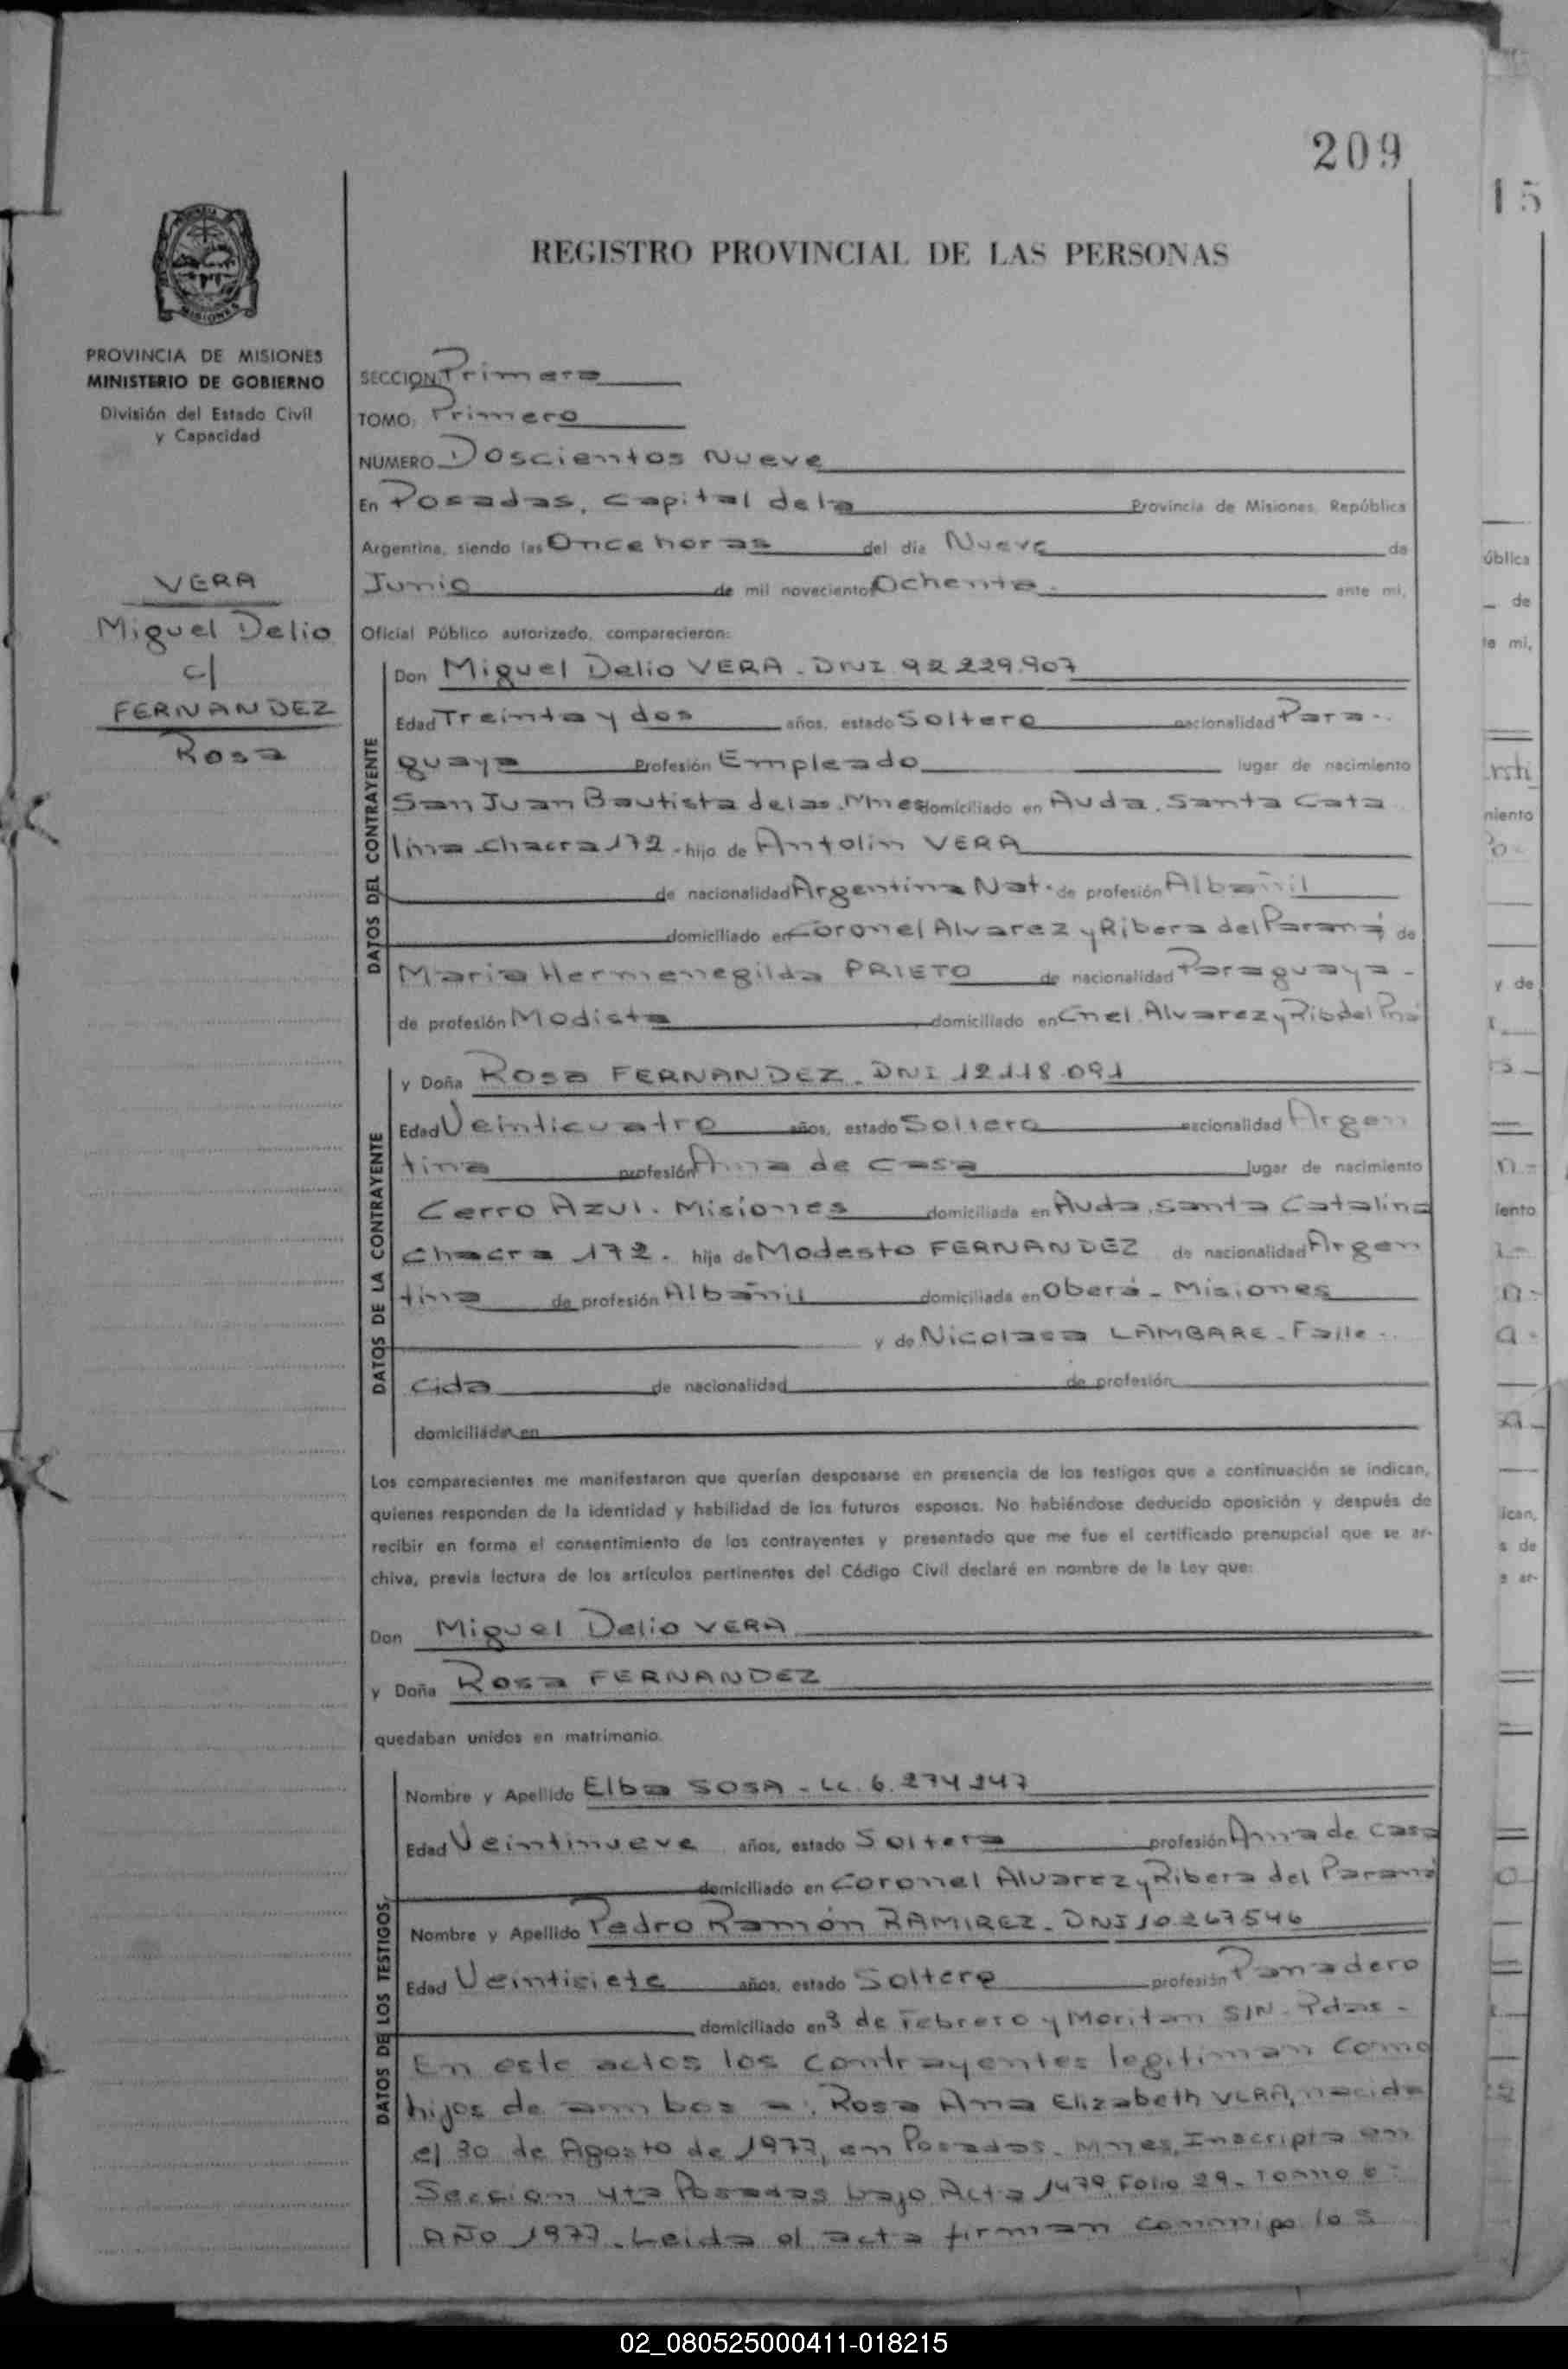 209
REGISTRO PROVINCIAL DE LAS PERSONAS
PROVINCIA DE MISIONES
MINISTERIO DE GOBIERNO
División del Estado Civil
y Capacidad
VERA
Miguel Delio
c/
FERNANDEZ
Rosa
SECCION Primera
TOMO: Primero
NUMERO Doscientos Nueve
En Posadas, Capital de la Provincia de Misiones, República
Argentina, siendo las Once horas del día Nueve de
Junio de mil novecientos Ochenta. ante mi,
Oficial Público autorizado, comparecieron:
DATOS DEL CONTRAYENTE
Don Miguel Delio VERA - DNI 92.229.907
Edad Treinta y dos años, estado Soltero nacionalidad Para-
guaya Profesión Empleado lugar de nacimiento
San Juan Bautista de las Mnes domiciliado en Avda. Santa Cata
lina Chacra 172 - hijo de Antolin VERA
de nacionalidad Argentina Nat. de profesión Albañil
domiciliado en Coronel Alvarez y Ribera del Paraná y de
Maria Hermenegilda PRIETO de nacionalidad Paraguaya -
de profesión Modista domiciliado en Cnel. Alvarez y Rib del Pná
DATOS DE LA CONTRAYENTE
y Doña Rosa FERNANDEZ - DNI 12.118.091
Edad Veinticuatro años, estado Soltera nacionalidad Argen
tina profesión Ama de Casa lugar de nacimiento
Cerro Azul. Misiones domiciliada en Avda. Santa Catalina
Chacra 172. hija de Modesto FERNANDEZ de nacionalidad Argen
tina de profesión Albañil domiciliada en Oberá - Misiones
y de Nicolasa LAMBARE - Falle-
cida de nacionalidad de profesión
domiciliada en
Los comparecientes me manifestaron que querían desposarse en presencia de los testigos que a continuación se indican,
quienes responden de la identidad y habilidad de los futuros esposos. No habiéndose deducido oposición y después de
recibir en forma el consentimiento de los contrayentes y presentado que me fue el certificado prenupcial que se ar-
chiva, previa lectura de los artículos pertinentes del Código Civil declaré en nombre de la Ley que:
Don Miguel Delio VERA
y Doña Rosa FERNANDEZ
quedaban unidos en matrimonio.
DATOS DE LOS TESTIGOS
Nombre y Apellido Elba SOSA - LC. 6.274.247
Edad Veintinueve años, estado Soltera profesión Ama de Casa
domiciliado en Coronel Alvarez y Ribera del Paraná
Nombre y Apellido Pedro Ramón RAMIREZ - DNI 10.267546
Edad Veintisiete años, estado Soltero profesión Panadero
domiciliado en 3 de Febrero y Moritan S/N - Pdas -
En este actos los contrayentes legitiman como
hijos de ambos a: Rosa Ana Elizabeth VERA, nacida
el 30 de Agosto de 1977, en Posadas. Mnes, Inscripta en
Seccion 4ta Posadas bajo Acta 1479 Folio 29 - Tomo
AÑO 1977. Leida el acta firman conmigo los
02_080525000411-018215